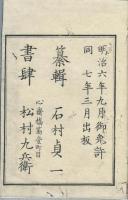 明治六年九月御免許
同 七年三月出板
纂輯 石村貞一
心斎橋筋壹町目
書肆 松村九兵衛